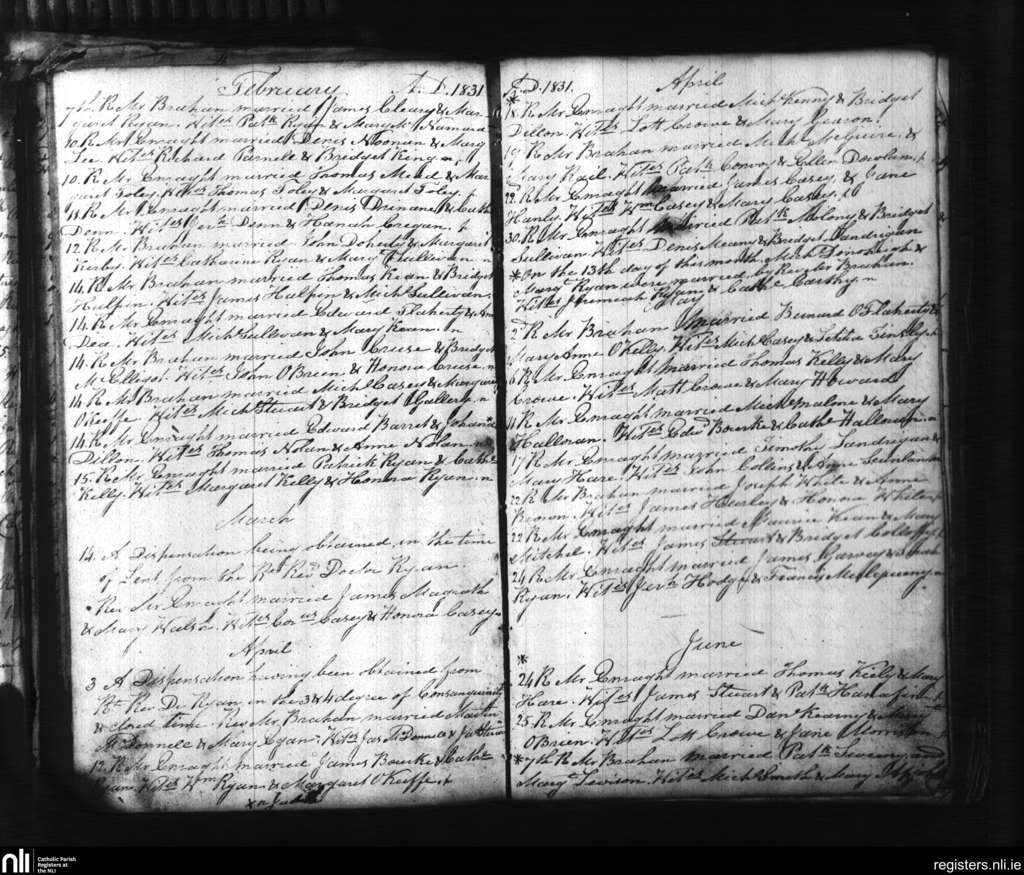 February A.D. 1831
7th. R Mr Brahan married James Cleary & Mar-
garet Ryan. Wit.es Patk Ryan & Mary McNamara
10. R Mr Enraght married Denis Noonan & Mary
Lee Wit.es Richard Parnell & Bridget King n
10. R Mr Enraght married Thomas Mead & Mar
garet Foley. Wit.es Thomas Foley & Margaret Foley.
11. R Mr Enraght married Denis Drinane & Cathe
Donn. Wit.es & Hanah Cregan.
12. R Mr Brahan married John Doherty & Margaret
Kerby. Wit.es Catharine Ryan & Mary Sullivan n
14. R Mr Brahan married Thomas Kean & Bridget
Halpin. Wit.es James Halpin & Michl Sullivan.
14. R Mr Enraght married Edward Flaherty &
Dea. Wit.es Michl Sullivan & Mary Kean. n
14. R Mr Brahan married John Creese & Bridget
McElligot Wit.es John O'Brien & Honora Creese n
14 R Mr Brahan married Michl Casey & Margaret
O'Keffe. Wit.es Michl Stuart & Bridget Gallery. n
14. R Mr Enraght married Edward Barret & Johana
Dillon. Wit.es Thomas Nolan & Anne Nolan. n
15. R Mr Enraght married Patrick Ryan & Cathe
Kelly. Wit.es Margaret Kelly & Honora Ryan. n
March
14. A Dispensation being obtained in the time
of Lent from the Rt Revd Doctor Ryan.
Rev. Mr Enraght married James Magrath
& Mary Walsh. Wit.es Cors Casey & Honora Casey.
April
3 A Dispensation having been obtained from
Rt Rev. Dr Ryan in the 3 & 4 degree of Consanguinity
& closed time. Rev Mr Brahan married Martin
McDonnell & Mary Egan. Wit.es Jas McDonnell &
12. R Mr Enraght married James Bourke & Cathe
Ryan. Wit.es Wm Ryan & Margaret O'Keiffe.
A.D. 1831. April
*
18. R Mr Enraght married Michl Kenny & Bridget
Dillon. Wit.es Lott Crowe & Mary Deason.
19. R Mr Brahan married Michl McGuire, &
Mary Kail. Wit.es Patk Conroy & Ellen Dowlan
22. R Mr Enraght married James Casey, & Jane
Hanly. Wit.es Wm Casey & Mary Casey.
30. R Mr Enraght married Patk Molony & Bridget
Sullivan Wit.es Denis Meany & Bridget Landrigan
* On the 13th day of this month Michl Donohugh &
Margt Ryan were married by Rev Mr Brahan.
Wit.es Jeremiah Ryan & Cathe Carthy n
May
2. R Mr Brahan married Bernard O'Flaherty &
Mary Anne O'Kelly. Wit.es Michl Casey & Letitia Tinsley
6 R Mr Enraght married Thomas Kelly & Mary
Crowe. Wit.es Matt Crowe & Mary Howard
11 R Mr Enraght married Michl Malone & Mary
Halloran. Wit.es Edwd Bourke & Cathe Halloran n
17. R Mr Enraght married Timothy Landrigan &
Mary Hare. Wit.es John Collins & Anne Scanlan
22. R Mr Brahan married Joseph White & Anne
Brown. Wit.es James Hurley & Honora White
22. R Mr Enraght married Maurice Kean & Mary
Mitchel. Wit.es James Stuart & Bridget
24. R Mr Enraght married James Garvey & Sarah
Ryan. Wit.es Jerh Hodge & Francis
June
*
24 R Mr Enraght married Thomas Kiely & Mary
Hare. Wit.es James Steuart & Patk
25. R Mr Enraght married Danl Kearny & Mary
O'Brien. Wit.es Lott Crowe & Jane Morrison
* 7th R Mr Brahan married Patk Sweeny and
Mary Lewison. Wit.es Michl Smith & Mary
nli
Catholic Parish
Registers at
the NLI
registers.nli.ie